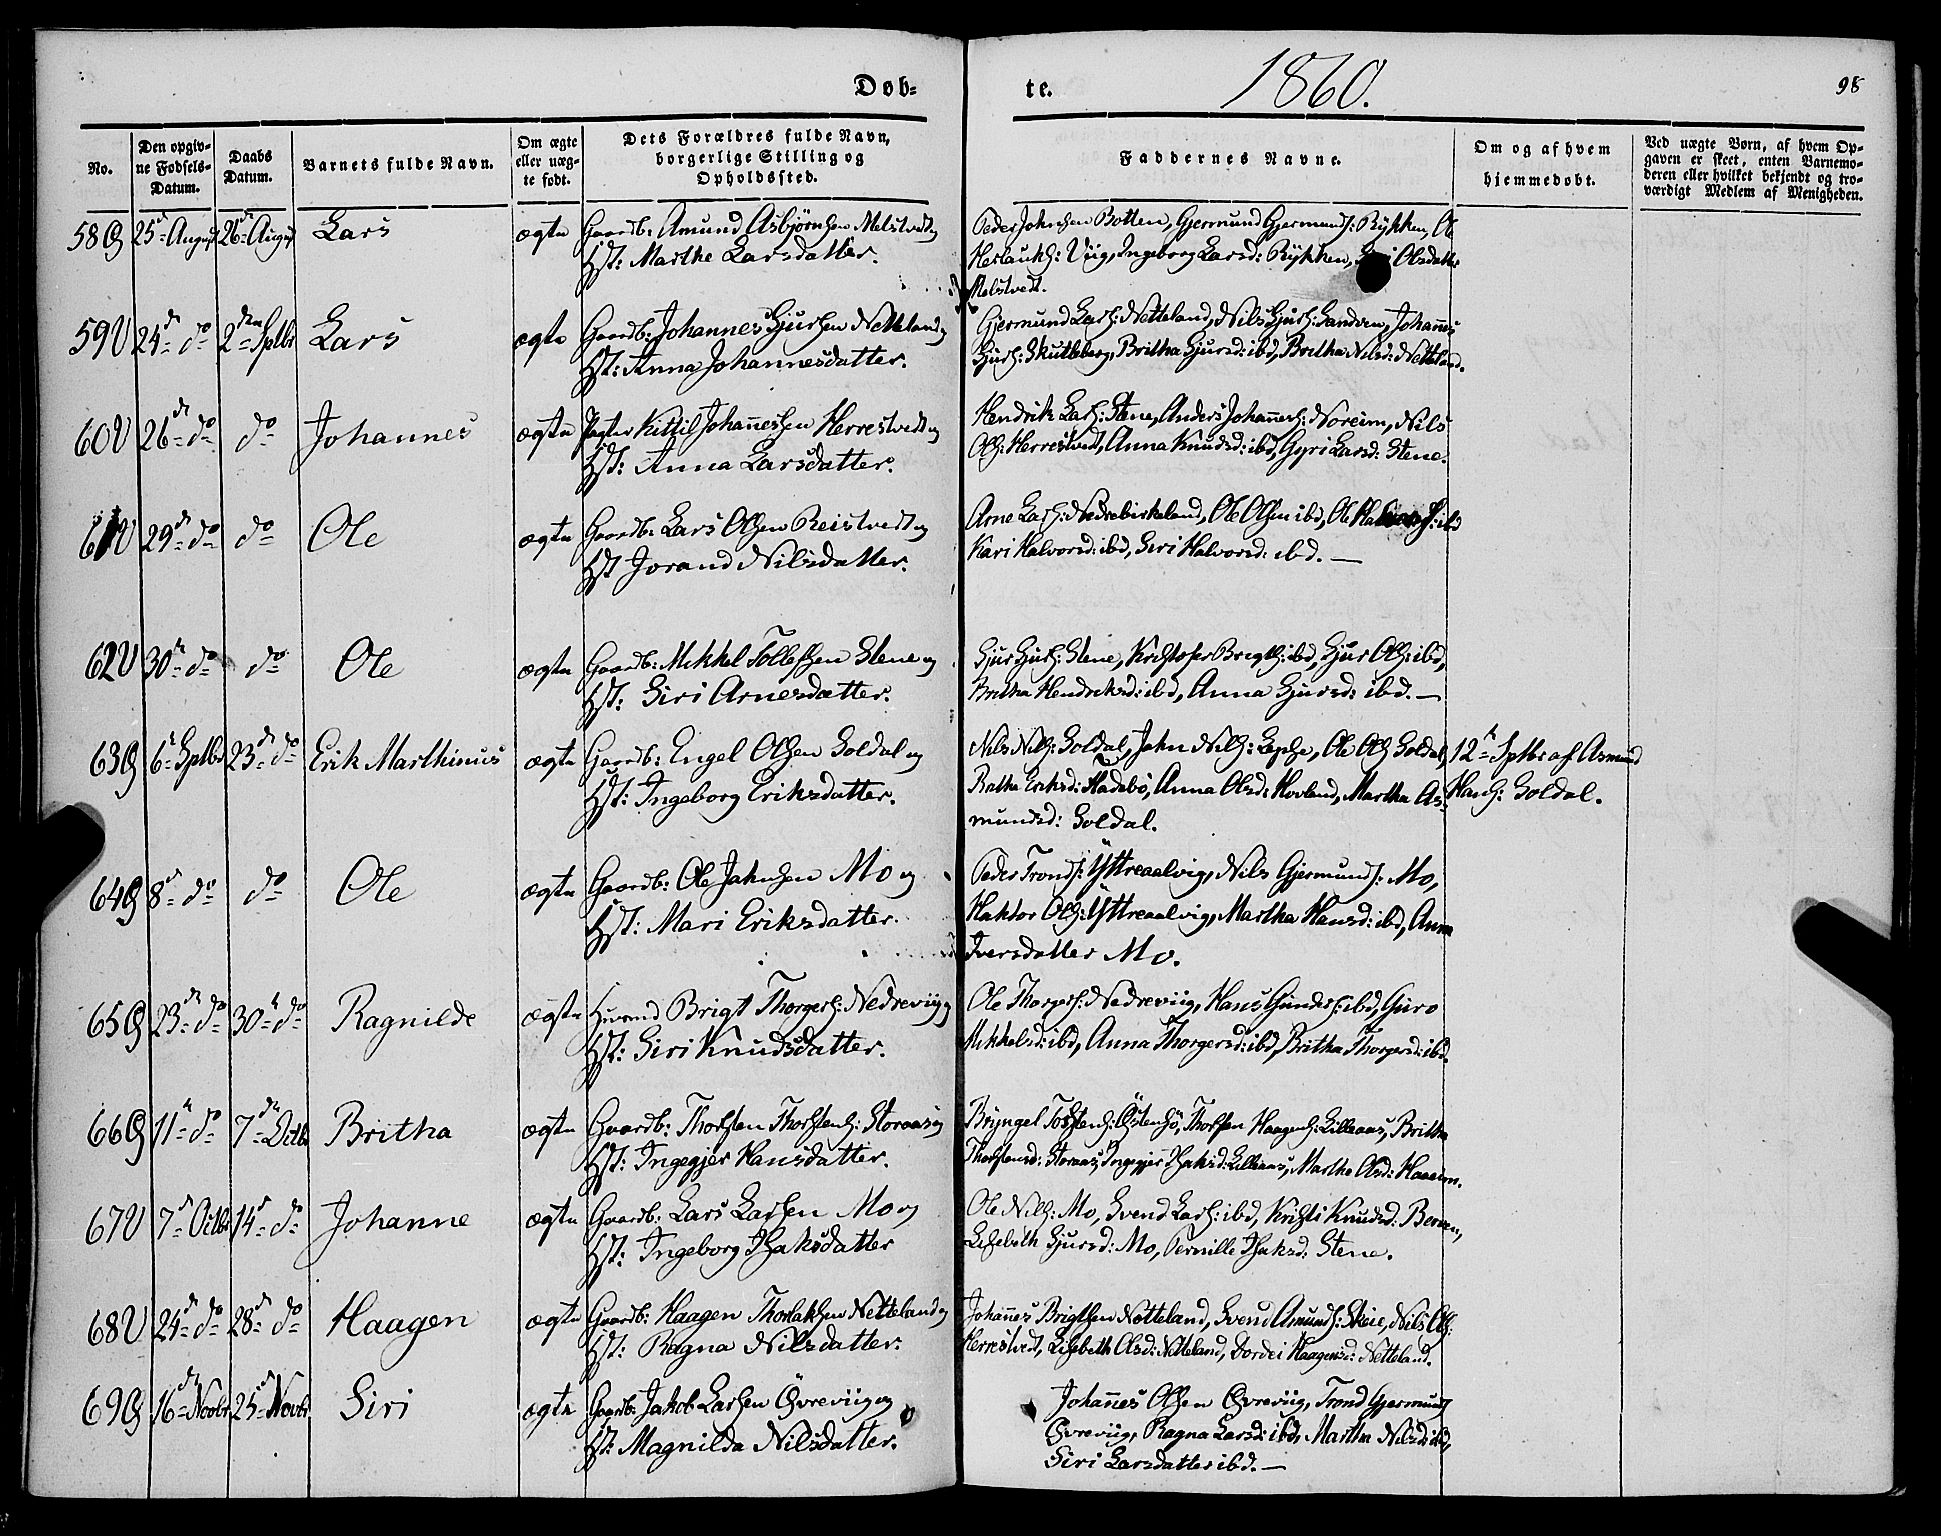 Døb-
te.
1860.
98
No.
Den opgiv-
ne Fødsels-
Datum.
Daabs
Datum.
Barnets fulde Navn.
Om ægte
eller uæg-
te født.
Dets Forældres fulde Navn,
borgerlige Stilling og
Opholdssted.
Faddernes Navne.
Om og af hvem
hjemmedøbt.
Ved uægte Børn, af hvem Op-
gaven er skeet, enten Barnemo-
deren eller hvilket bekjendt og tro-
værdigt Medlem af Menigheden.
58 G 25de August 26de August Lars ægte Gaardb: Amund Asbjørnsen Melstvedt og
Hst: Marthe Larsdatter.
Peder Johnsen Botten, Gjermund Gjermunds: Rykken, Ole
Herlauks: Viig, Ingeborg Larsd: Rykken, Olsdatter
Melstvedt.
59 V 24de do 2den Sptbr Lars ægte Gaardb: Johannes Sjursen Netteland og
Hst: Anna Johannesdatter.
Gjermund Lars: Netteland, Nils Sjurs: Sandven, Johannes
Sjurs: Skutleberg, Britha Sjursd: ibd, Britha Nilsd: Netteland.
60 V 26de do do Johannes ægte Pagter Kittil Johannessen Herrestvedt og
Hst: Anna Larsdatter.
Hendrik Lars: Stene, Anders Johannes: Noreim, Nils
Ols: Herrestvedt, Anna Knudsd: ibd, Gyri Larsd: Stene.
61 V 29de do do Ole ægte Gaardb: Lars Olsen Reistvedt og
Hst Jorand Nilsdatter.
Arne Lars: Nedrebirkeland, Ole Olsen ibd, Ole Halvors: ibd
Kari Halvorsd: ibd, Siri Halvorsd: ibd. —
62 V 30te do do Ole ægte Gaardb: Mikkel Tollefsen Stene og
Hst: Siri Arnesdatter.
Sjur Sjurs: Stene, Kristofer Brigts: ibd, Sjur Ols: ibd,
Britha Hendriksd: ibd, Anna Sjursd: ibd. —
63 G 6te Sptbr 23de do Erik Marthinus ægte Gaardb: Engel Olsen Soldal og
Hst: Ingeborg Eriksdatter.
Nils Nils: Soldal, John Nils: Lepse, Ole Ols: Soldal,
Eriksd: Fladebø, Anna Olsd: Hovland, Martha As-
mundsd: Soldal.
12te Sptbr af Asmund
Hans: Soldal.
64 G 8de do do Ole ægte Gaardb: Ole Johnsen Mo og
Hst: Mari Eriksdatter.
Peder Tronds: Yttreaalvig, Nils Gjermunds: Mo,
Haktor Ols: Yttreaalvig, Martha Hansd: ibd, Anna
Iversdatter Mo.
65 G 23de do 30te do Ragnilde ægte Huusmd Brigt Thorgers: Nedreviig og
Hst: Siri Knudsdatter.
Ole Thorgers: Nedreviig, Hans Gunders: ibd, Guro
Mikkelsd: ibd, Anna Thorgersd: ibd, Britha Thorgersd: ibd.
66 G 11te do 7de Octbr Britha ægte Gaardb: Thorsten Thorstens: Storaas og
Hst: Ingegjer Hansdatter.
Bryngel Tostens: Östensjö, Thorsten Haagens: Lilleaas, Britha
Thorstensd: Storaas, Ingegjer Isaksd: Lilleaas, Martha Olsd: Haaeim.
67 V 7de Octbr 14de do Johanne ægte Gaardb: Lars Larsen Mo og
Hst: Ingeborg Isaksdatter
Ole Nils: Mo, Svend Lars: ibd, Kristi Knudsd: Berven,
Lisebith Sjursd: Mo, Pernille Isaksd: Stene.
68 V 24de do 28de do Haagen ægte Gaardb: Haagen Thorlaksen Netteland og
Hst: Ragna Nilsdatter.
Johannes Brigtsen Netteland, Svend Amunds: Skeie, Nils Ols:
Herrestvedt, Lisbeth Olsd: Netteland, Dordei Haagensd: Netteland.
69 G 16de Novbr 25de Novbr Siri ægte Gaardb: Jakob Larsen Øvreviig og
Hst: Magnilda Nilsdatter.
Johannes Olsen Øvreviig, Trond Gjermunds
Øvreviig, Ragna Larsd: ibd, Martha Nilsd: ibd,
Siri Larsdatter ibd. —